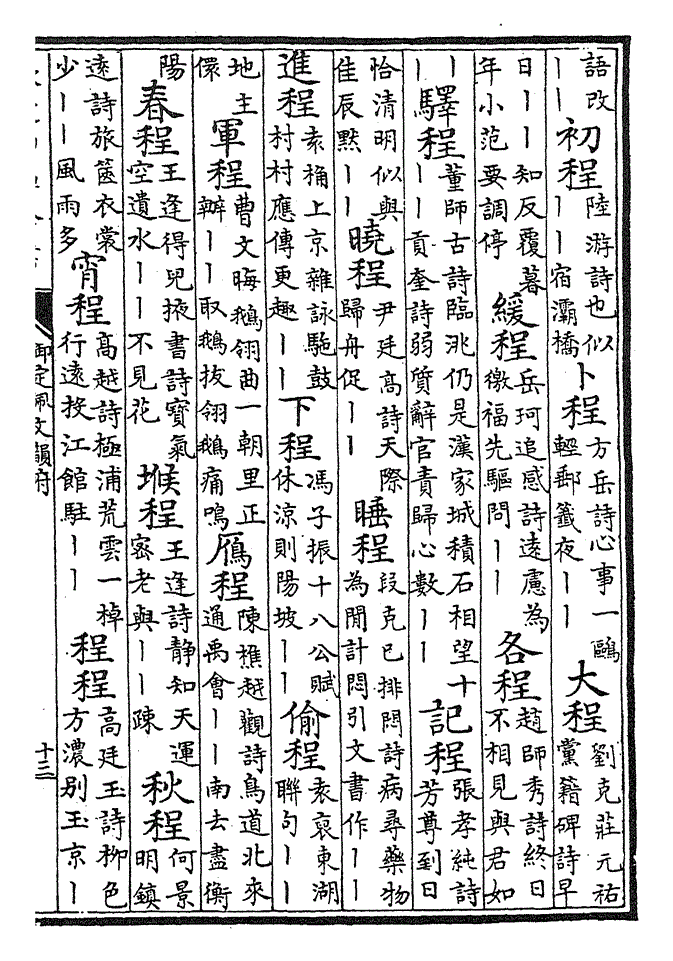 語改丨丨初程陸游詩也似丨丨宿灞橋卜程方岳詩心事一鷗輕郵籤夜丨丨大程劉克莊元祐黨籍碑詩早
日丨丨知反覆暮年小范要調停緩程岳珂追感詩遠慮為徼福先驅問丨丨各程趙師秀詩終日不相見與君如
丨丨驛程董師古詩臨洮仍是漢家城積石相望十丨丨貢奎詩弱質辭官責歸心數丨丨記程張孝純詩芳尊到日
恰清明似與佳辰默丨丨曉程尹廷高詩天際歸舟促丨丨睡程段克已排悶詩病尋藥物為閒計悶引文書作丨丨
進程袁桷上京雜詠駞鼓村村應傳更趣丨丨下程馮子振十八公賦休涼則陽坡丨丨偷程袁裒東湖聯句丨丨
地主儇軍程曹文晦鵝翎曲一朝里正辦丨丨取鵝拔翎鵝痛鳴鴈程陳樵越觀詩鳥道北來通禹會丨丨南去盡衡
陽春程王逢得兒掖書詩寶氣空遺水丨丨不見花堠程王逢詩靜知天運密老與丨丨疎秋程何景明鎮
遠詩旅篋衣裳少丨丨風雨多宵程高越詩極浦荒雲一棹行遠投江館駐丨丨程程高廷玉詩柳色方濃別玉京丨
御定佩文韻府
十三